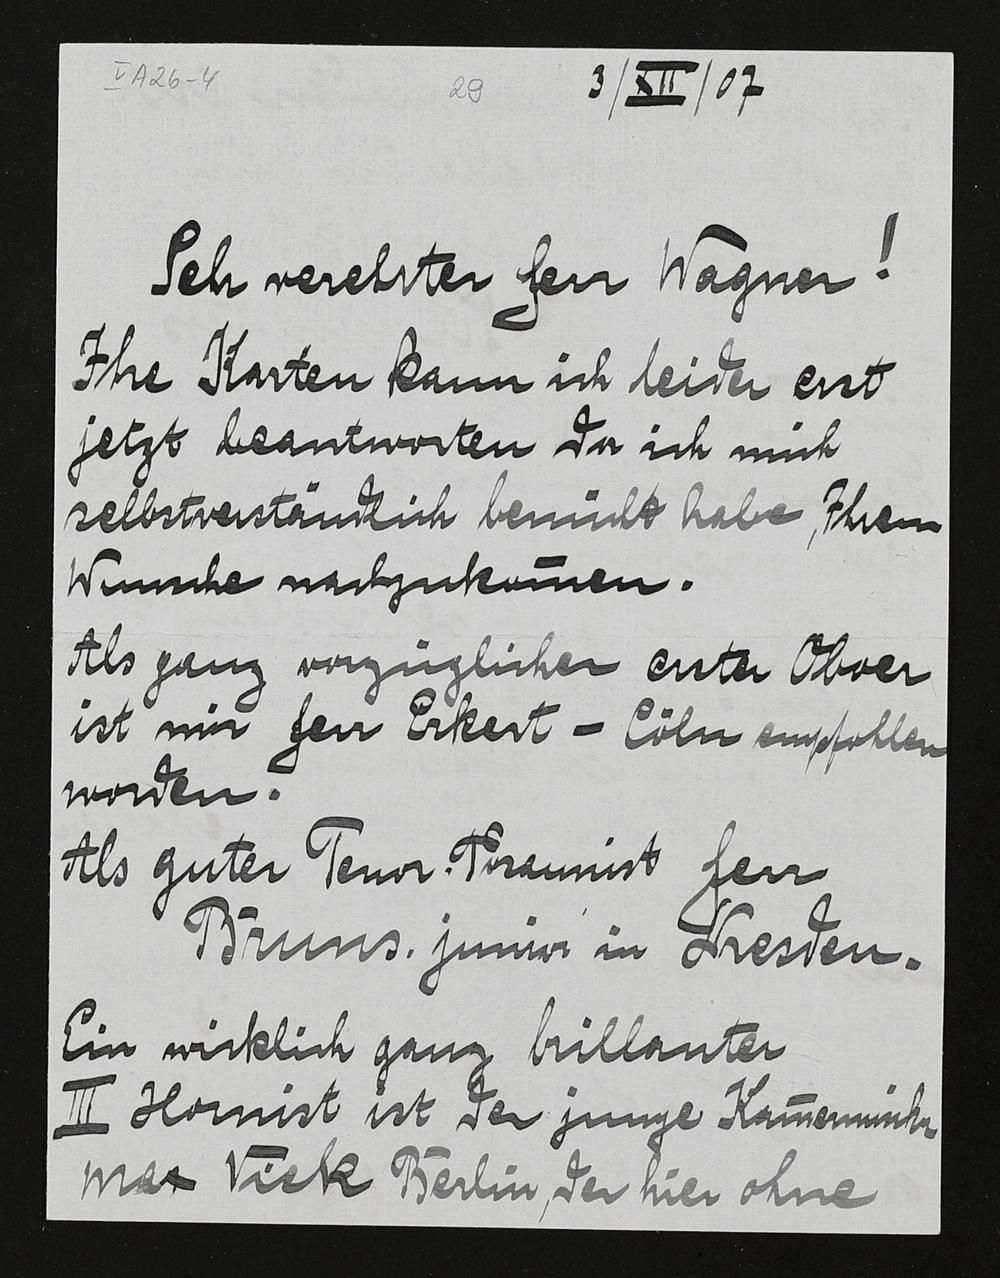 V A26-4 29 3/XII/07
Sehr verehrter Herr Wagner!
Ihre Karten kann ich leider erst
jetzt beantworten da ich mich
selbstverständlich bemüht habe, Ihrem
Wunsche nachzukom̄en.
Als ganz vorzüglicher erster Oboer
ist mir Herr Erkert - Cöln empfohlen
worden.
Als guter Tenor-Posaunist Herr
Bruns. junior in Dresden.
Ein wirklich ganz brillanter
III Hornist ist der junge Kam̄ermusiker
Max Vick Berlin, der hier ohne